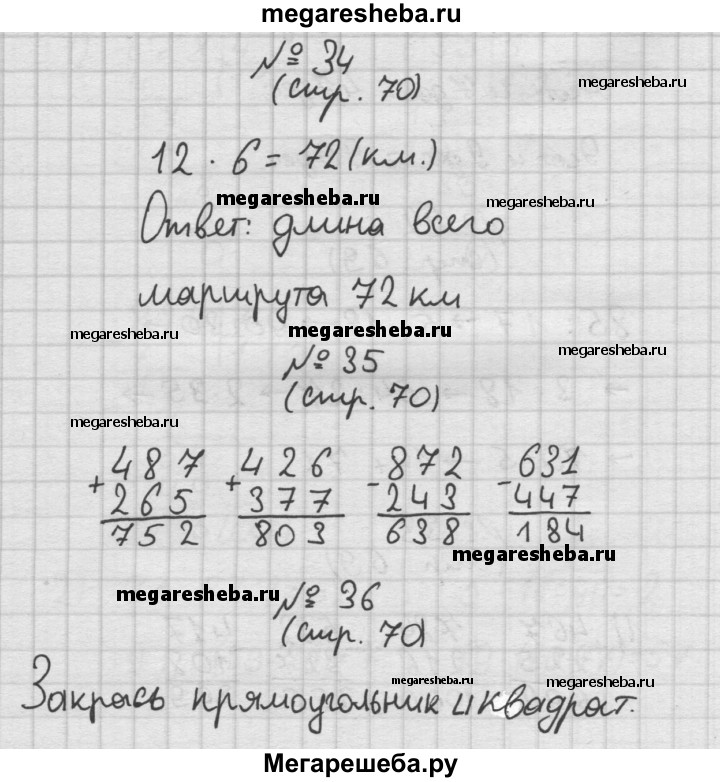 megaresheba.ru
№ 34
(стр. 70)
megaresheba.ru
12 · 6 = 72 (км.)
megaresheba.ru
megaresheba.ru
Ответ: длина всего
маршрута 72 км
megaresheba.ru
megaresheba.ru
megaresheba.ru
№ 35
(стр. 70)
megaresheba.ru
+ 487 + 426 - 872 - 631
265 377 243 447
752 803 638 184
megaresheba.ru
megaresheba.ru
№ 36
(стр. 70)
megaresheba.ru
megaresheba.ru
Закрась прямоугольник и квадрат.
Мегарешеба.ру